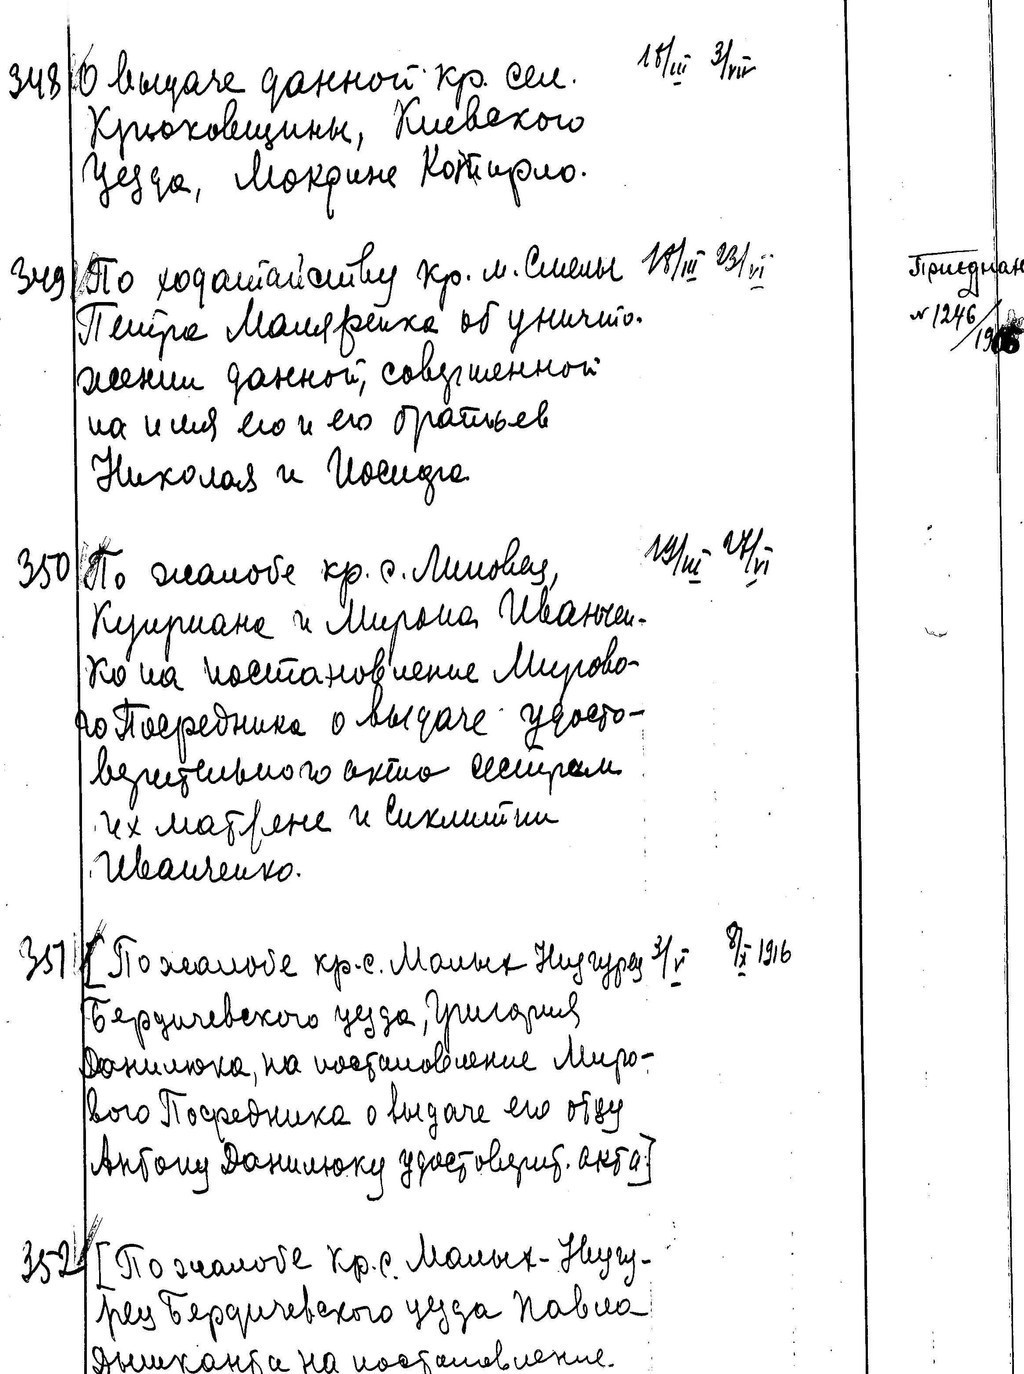 348 О выдаче данной кр. сел. 18/III 3/VII
Крюковщины, Киевского
уезда, Мокрине Котирло.
349 По ходатайству кр. м. Смелы 18/III 23/VI
Петра Маляренка об уничто-
жении данной, совершенной
на имя его и его братьев
Николая и Иосифа
Приєднан
№ 1246
/19
350 По жалобе кр. с. Липовец, 19/III 27/VI
Куприана и Мирона Иванчен-
ко на постановление Мирово-
го Посредника о выдаче удосто-
верительного акта сестрам
их Матрене и Синклитии
Иванченко.
351 [По жалобе кр. с. Малых Низгурец 3/V 8/X 1916
Бердичевского уезда, Григория
Данилюка, на постановление Миро-
вого Посредника о выдаче его отцу
Антону Данилюку удостоверит. акта]
352 [По жалобе кр. с. Малых-Низгу-
рец Бердичевского уезда Павла
на постановление.